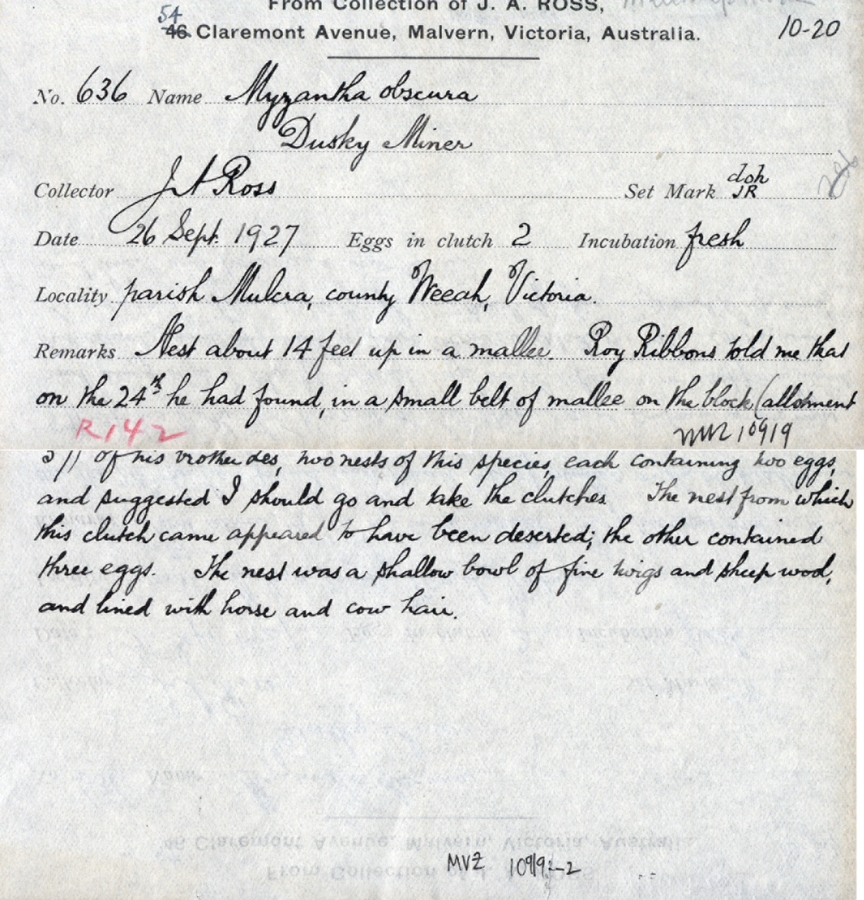 From Collection of J. A. ROSS,
54
46 Claremont Avenue, Malvern, Victoria, Australia.
10-20
No. 636 Name Myzantha obscura
Dusky Miner
Collector J A Ross Set Mark doh JR
Date 26 Sept. 1927 Eggs in clutch 2 Incubation fresh
Locality parish Mulcra, county of Weeah, of Victoria.
Remarks Nest about 14 feet up in a mallee. Roy Ribbons told me that
on the 24th he had found, in a small belt of mallee on the block (allotment
R142
MVZ 10919
of his brother's, two nests of this species, each containing two eggs,
and suggested I should go and take the clutches The nest from which
this clutch came appeared to have been deserted; the other contained
three eggs. The nest was a shallow bowl of fine twigs and sheep wool,
and lined with horse and cow hair.
MVZ 10919:-2